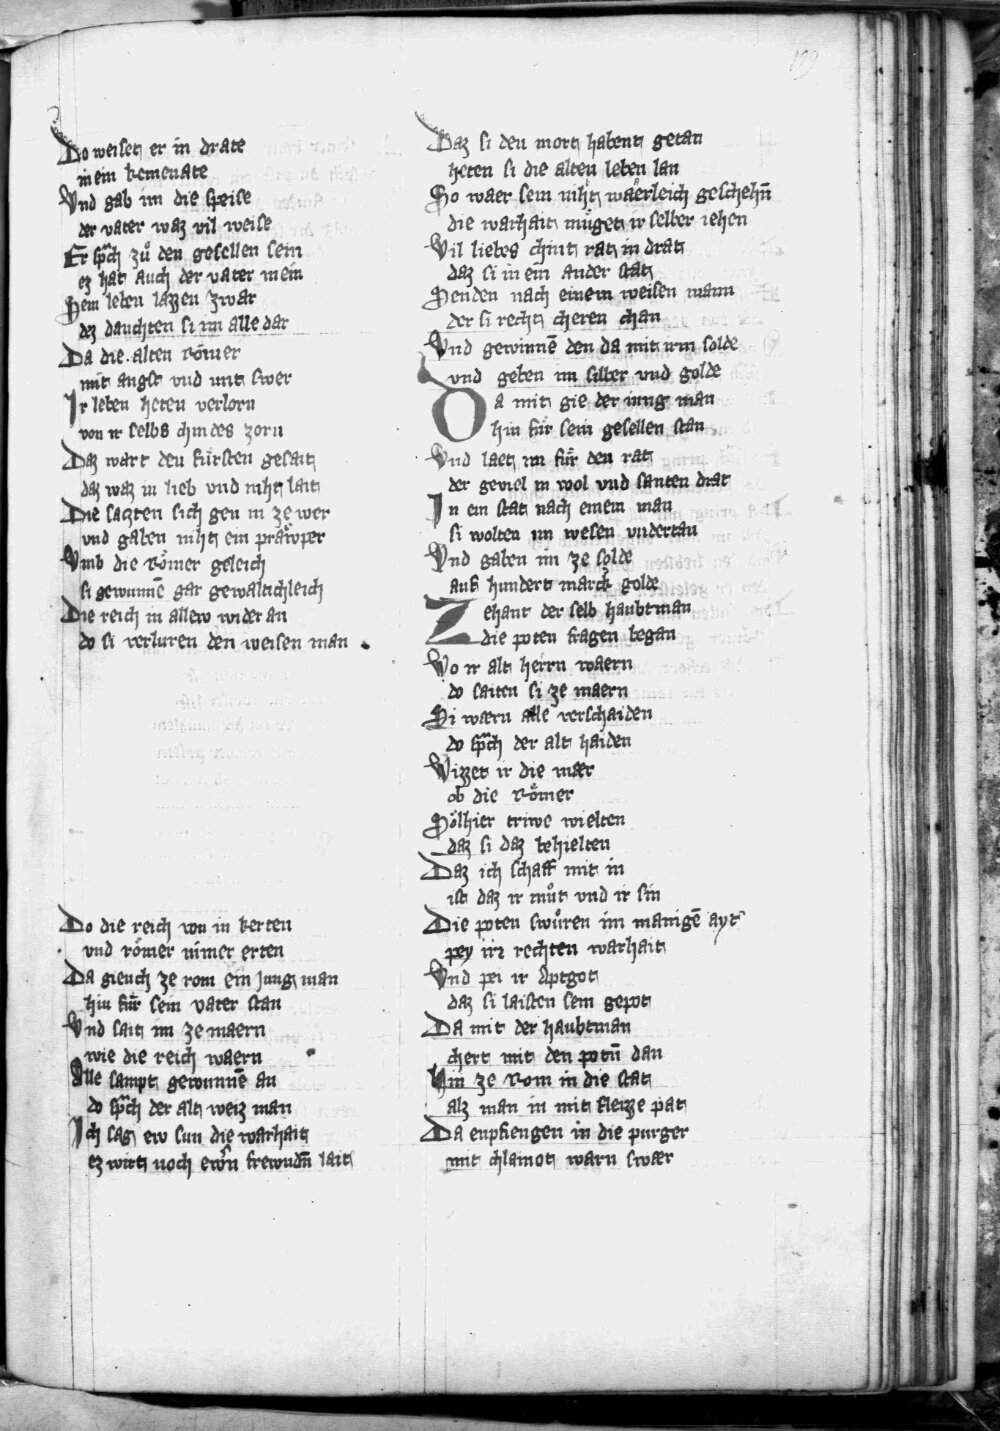 189
Do weiset er in drate
in ein kemenate
Vnd gab im die speise
der vater waz vil weise
Er sp̃ch zuͦ den gesellen sein
ez hat auch der vater mein
Sein leben lazzen zwar
dez dauchten si im alle dar
Da die alten Roͤmer
mit angst vnd mit swer
Ir leben heten verlorn
von ir selbs chindes zorn
Daz wart den fuͤrsten gesait
daz waz in lieb vnd niht lait
Die saczten sich gen in ze wer
vnd gaben niht ein praͤwper
Vmb die Roͤmer geleich
si gewunnē gar gewaltichleich
Die reich in allew wider an
do si verluren den weisen man
Do die reich von in kerten
vnd roͤmer nimer erten
Da giench ze rom ein jung man
hin fuͤr sein vater stan
Vnd sait im ze maern
wie die reich waern
Alle sampt gewunnē an
do sp̃ch der alt weiz man
Ich sag ew sun die warhait
ez wirt noch ewrn frewndn̄ lait
Daz si den mort habent getan
heten si die alten leben lan
So waer sein niht waerleich geschehn̄
die warhait muͤget ir selber iehen
Vil liebes chint rat in drat
daz si in ein ander stat
Senden nach einem weisen mann
der si recht cheren chan
Vnd gewinnē den da mit irm solde
vnd geben im silber vnd golde
Da mit gie der iung man
hin fuͤr sein gesellen stan
Vnd laet im fuͤr den rat
der geviel in wol vnd santen drat
In ein stat nach einem man
si wolten im wesen vndertan
Vnd gaben im ze solde
auf hundert marck golde
Zehant der selb haubtman
die poten fragen began
Wo ir alt herrn waern
do saiten si ze maern
Si wærn alle verschaiden
do sp̃ch der alt haiden
Wizzet ir die mær
ob die Roͤmer
Soͤlhier triwe wielten
daz si daz behielten
Daz ich schaff mit in
ist daz ir muͦt vnd ir sin
Die poten swuͦren im manigē ayt
pey irr rechten warhait
Vnd pei ir Aptgot
daz si laisten sein gepot
Da mit der haubtman
chert mit den potn̄ dan
Hin ze Rom in die stat
alz man in mit fleizze pat
Da enpfiengen in die purger
mit chlainot warn swær